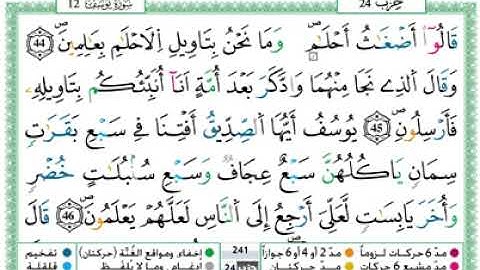 حزب 24 سورة يوسف 12
قَالُوٓاْ أَضْغَٰثُ أَحْلَٰمٖ وَمَا نَحْنُ بِتَاوِيلِ اِلَاحْلَٰمِ بِعَٰلِمِينَ 44
وَقَالَ اَلذِے نَجَا مِنْهُمَا وَادَّكَرَ بَعْدَ أُمَّةٍ اَنَآ أُنَبِّئُكُم بِتَاوِيلِهِۦ
فَأَرْسِلُونِ 45 يُوسُفُ أَيُّهَا اَلصِّدِّيقُ أَفْتِنَا فِے سَبْعِ بَقَرَٰتٖ
سِمَانٖ يَاكُلُهُنَّ سَبْعٌ عِجَافٞ وَسَبْعِ سُنۢبُلَٰتٍ خُضْرٖ
وَأُخَرَ يَابِسَٰتٖ لَّعَلِّيَ أَرْجِعُ إِلَى اَلنَّاسِ لَعَلَّهُمْ يَعْلَمُونَ 46 قَالَ
مدّ 6 حركات لزوماً مدّ 2 أو 4 أو 6 جوازاً 241 إخفاء ومواقع الغنّة (حركتان) تفخيم
مدّ مشبع 6 حركات مدّ حركتان 24 إدغام وما لا يُلفظ قلقلة